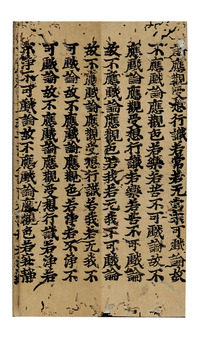 應觀受想行識若常若无常不可戲論故
不應戲論應觀色若樂若苦不可戲論故不
應戲論應觀受想行識若樂若苦不可戲論
故不應戲論應觀色若我若无我不可戲論
故不應戲論應觀受想行識若我若无我不
可戲論故不應戲論應觀色若淨若不淨不
可戲論故不應戲論應觀受想行識若淨若
不淨不可戲論故不應戲論應觀色若寂靜